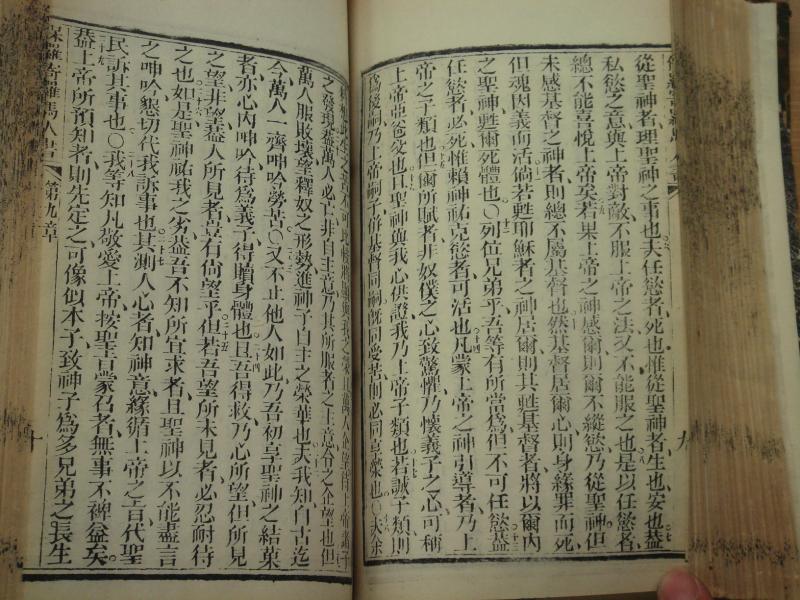 從聖神者理聖神之事也夫任慾者死也惟從聖神者生也安也蓋
私慾之意與上帝對敵不服上帝之法又不能服之也是以任慾者
總不能喜悅上帝矣若果上帝之神感爾則爾不縱慾乃從聖神但
未感基督之神者則總不屬基督也然基督居爾心則身緣罪而死
但魂因義而活倘若甦耶穌者之神居爾則其甦基督者將以爾內
之聖神甦爾死體也○列位兄弟乎吾等有所當為但不可任慾蓋
任慾者必死惟賴神祐克慾者可活也凡蒙上帝之神引導者乃上
帝之子類也但爾所賦者非奴僕之心致驚懼乃懷義子之心可稱
上帝亞爸父也且聖神與我心供證我乃上帝子類也若誠子類則
為後嗣乃上帝嗣子併基督同嗣既同受苦則必同享榮也○夫余
之發現蓋萬人必亡非自主意乃其所服者之主意令之企望也但
萬人服敗壞望釋奴之形勢進神子自主之榮華也夫我知自古迄
今萬人一齊呻吟勞苦○又不止他人如此乃吾初享聖神之結菓
者亦心內呻吟待為義子得贖身體也且吾得救乃心所望但所見
之望非望蓋人所見者豈有尚望乎但若吾望所未見者必忍耐待
之也如是聖神祐我之劣蓋吾不知所宜求者且聖神以不能盡言
之呻吟懇切代我訴事也其測人心者知神意緣循上帝之旨代聖
民訴其事也○我等知凡敬愛上帝按聖旨蒙召者無事不裨益矣
蓋上帝所預知者則先定之可像似本子致神子為多兄弟之長生
保羅寄羅馬人書 第九章